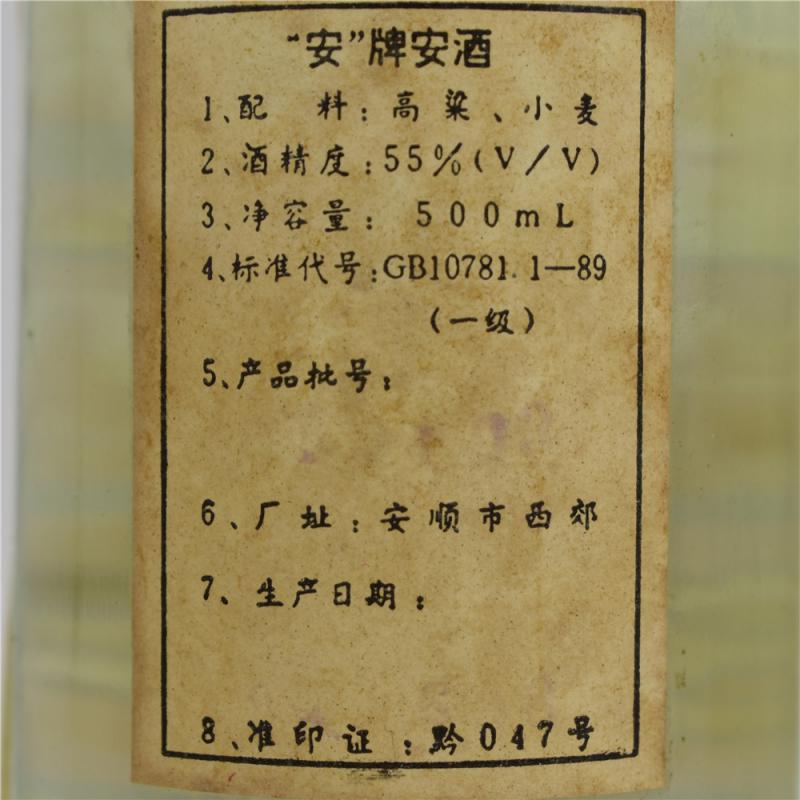 “安”牌安酒
1、配 料：高粱、小麦
2、酒精度：55%(V/V)
3、净容量： 500mL
4、标准代号：GB10781.1—89
(一级)
5、产品批号：
6、厂址：安顺市西郊
7、生产日期：
8、准印证：黔047号